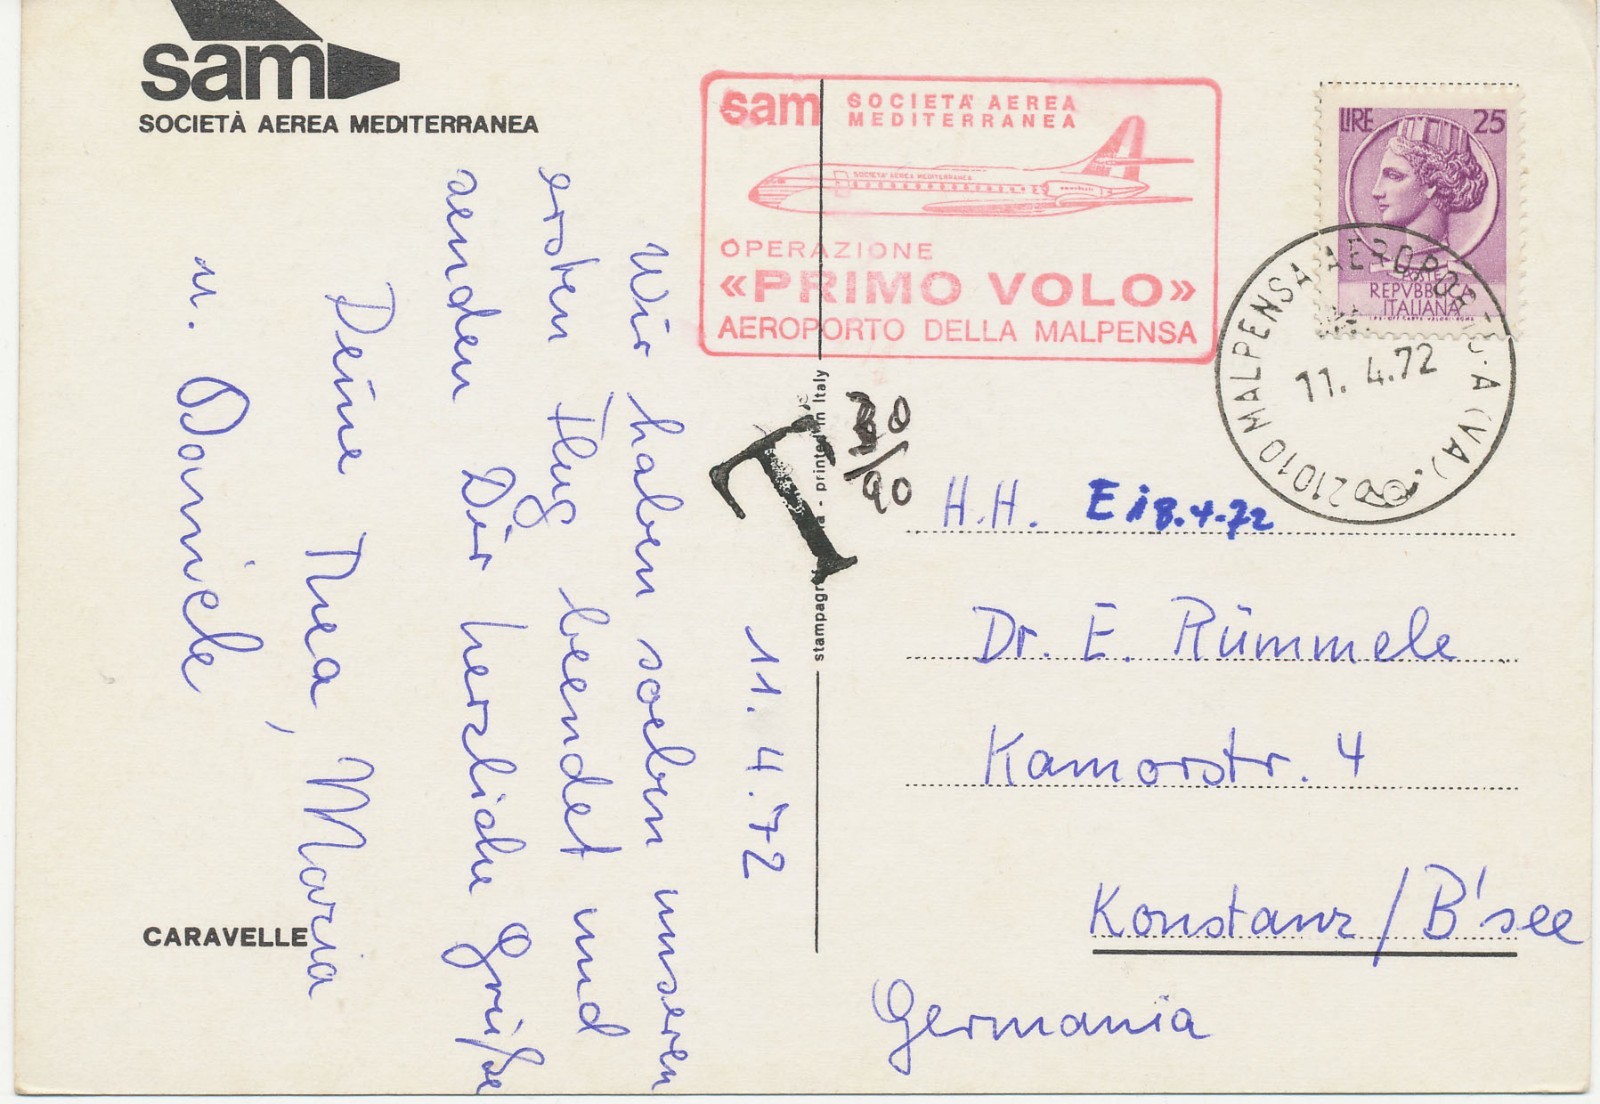 sam
SOCIETÀ AEREA MEDITERRANEA
sam SOCIETA' AEREA
MEDITERRANEA
SOCIETA' AEREA MEDITERRANEA
OPERAZIONE
«PRIMO VOLO»
AEROPORTO DELLA MALPENSA
LIRE 25
POSTE
REPVBBLICA
ITALIANA
21010 MALPENSA AEROPORTO (VA)
11.4.72
T
30
/
90
printed in Italy
11.4.72
Wir haben soeben unseren
ersten Flug beendet und
senden Dir herzliche Grüße
Deine Thea, Maria
u. Daniele
H.H. E i 8.4.72
Dr. E. Rümmele
Kamorstr. 4
Konstanz / B'see
Germania
CARAVELLE